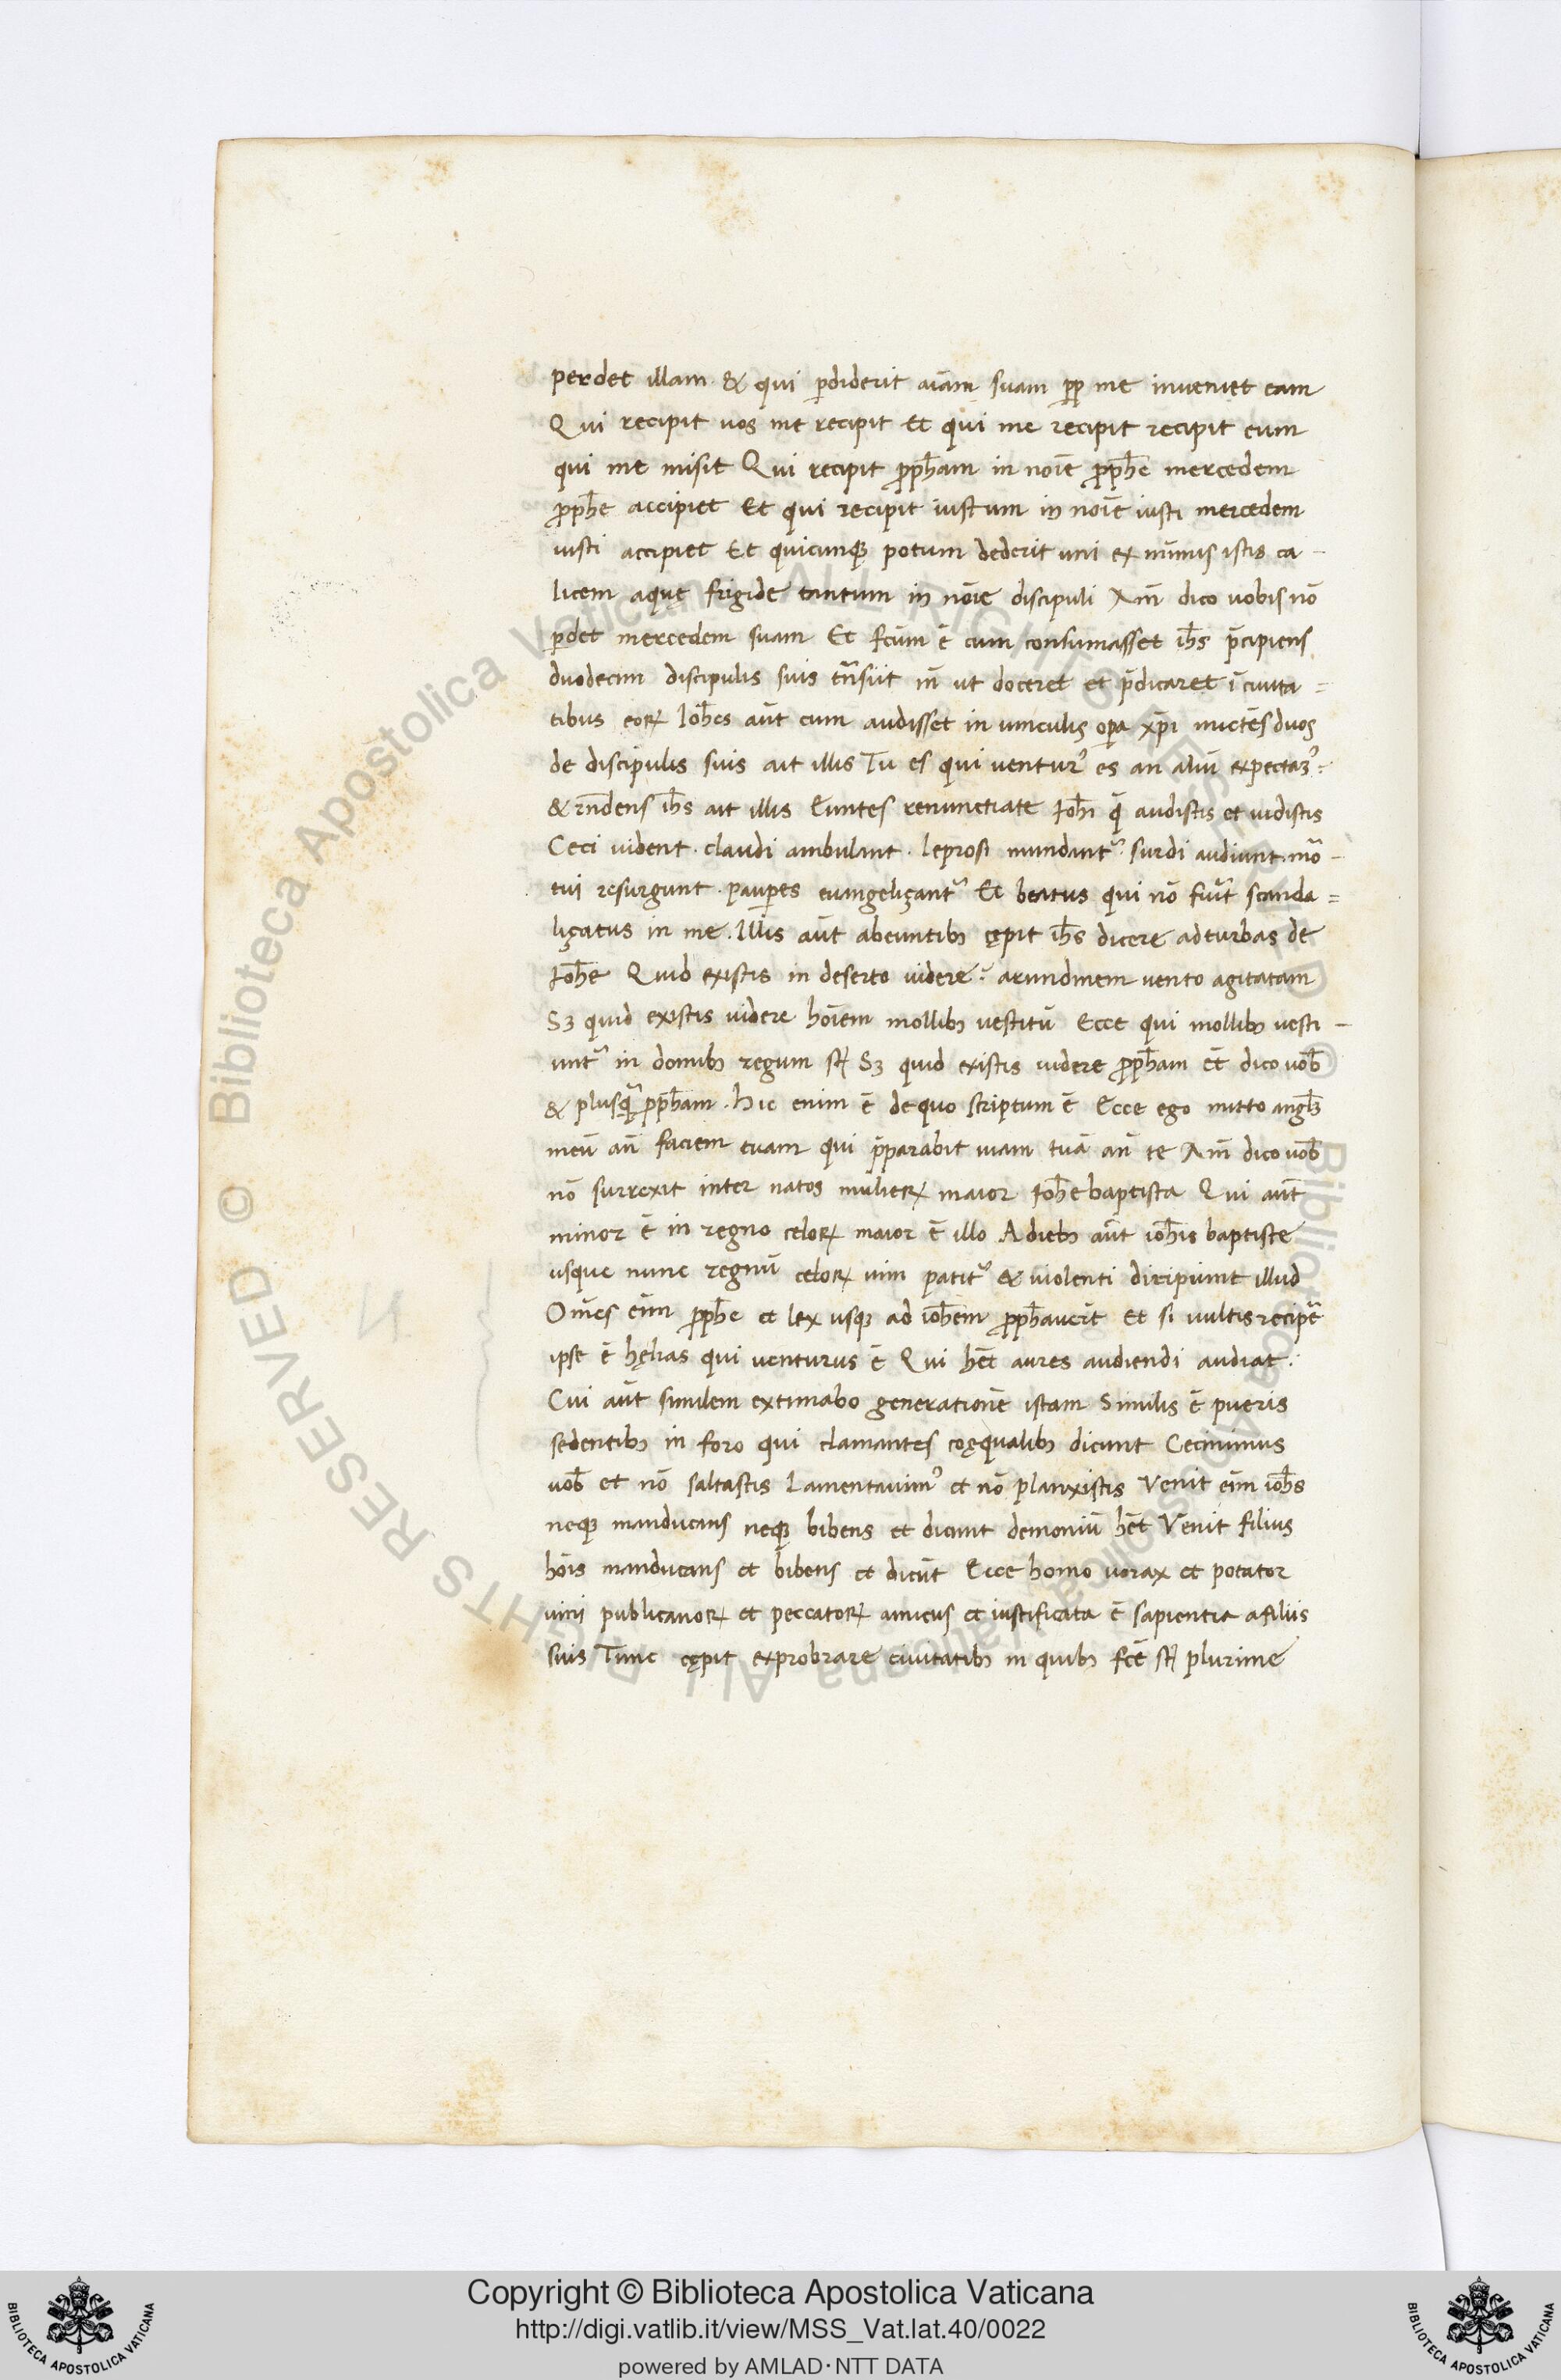 perdet illam & qui ꝑdiderit aīam suam ꝓp me inveniet eam
Qui recipit uos me recipit Et qui me recipit recipit eum
qui me misit Qui recipit ꝓph̄am in noīe ꝓph̄e mercedem
ꝓph̄e accipiet Et qui recipit iustum in noīe iusti mercedem
iusti accipiet Et quicunqꝫ potum dederit uni ex mīmis istis ca -
licem aquę frigide tantum in noīe discipuli Am̄ dico uobis nō
ꝑdet mercedem suam Et fcūm ē cum consumasset ih̄s p̄cipiens
duodecim discipulis suis tn̄siit in̄ ut doceret et p̄dicaret ī ciuita =
tibus eoꝝ Ioh̄es aūt cum audisset in uinculis oꝑa xp̄i mictēs duos
de discipulis suis ait illis Tu es qui uentur᾽ es an aliū expectam᾽:
& rn̄dens ih̄s ait illis Euntes renunctiate Ioh̄i q̄ audistis et uidistis
Ceci uident. claudi ambulant. leprosi mundant᾽. surdi audiunt. mō -
tui resurgunt. pauꝑes euangeliçant᾽ Et beatus qui nō fu͛it scanda =
liçatus in me. Illis aūt abeuntibꝫ cępit ih̄s dicere ad turbas de
Ioh̄e Quid existis in deserto uidere? arundinem uento agitatam
Sꝫ quid existis uidere hoīem mollibꝫ uestitū Ecce qui mollibꝫ uesti -
unt᾽ in domibꝫ regum st̄ Sꝫ quid existis uidere ꝓph̄am Et̄ dico uob̄
& plusq̄ ꝓph̄am. Hic enim ē de quo scriptum ē Ecce ego mitto angl̄ꝫ
meū an̄ faciem tuam qui p̄parabit uiam tuā an̄ te Am̄ dico uob̄
nō surrexit inter natos mulieꝝ maior Ioh̄e baptista Qui aūt
minor ē in regno celoꝝ maior ē illo A diebꝫ aūt ioh̄is baptiste
usque nunc regnū celoꝝ uim patit᾽ & uiolenti diripiunt illud
Om̄es eīm ꝓph̄e et lex usqꝫ ad ioh̄em ꝓph̄auer̄t Et si uultis recip͛e
ipse ē hęlias qui uenturus ē Qui het̄ aures audiendi audiat:
Cui aūt similem extimabo generationē istam Similis ē pueris
sedentibꝫ in foro qui clamantes coęqualibꝫ dicunt Cecinimus
uob̄ et nō saltastis Lamentauim᾽ et nō planxistis Venit eīm ioh̄s
neqꝫ manducans neqꝫ bibens et dicunt demoniū het̄ Venit filius
hōis manducans et bibens et dicūt Ecce homo uorax et potator
uini publicanoꝝ et peccatoꝝ amicus et iustificata ē sapientia a filiis
suis Tunc cępit exprobrare ciuitatibꝫ in quibꝫ fcē st̄ plurime
Copyright © Biblioteca Apostolica Vaticana
http://digi.vatlib.it/view/MSS_Vat.lat.40/0022
powered by AMLAD·NTT DATA
BIBLIOTECA APOSTOLICA VATICANA
BIBLIOTECA APOSTOLICA VATICANA